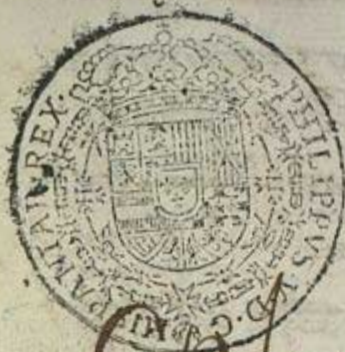 PHILIPPVS V D. G. HISPANIAR REX.